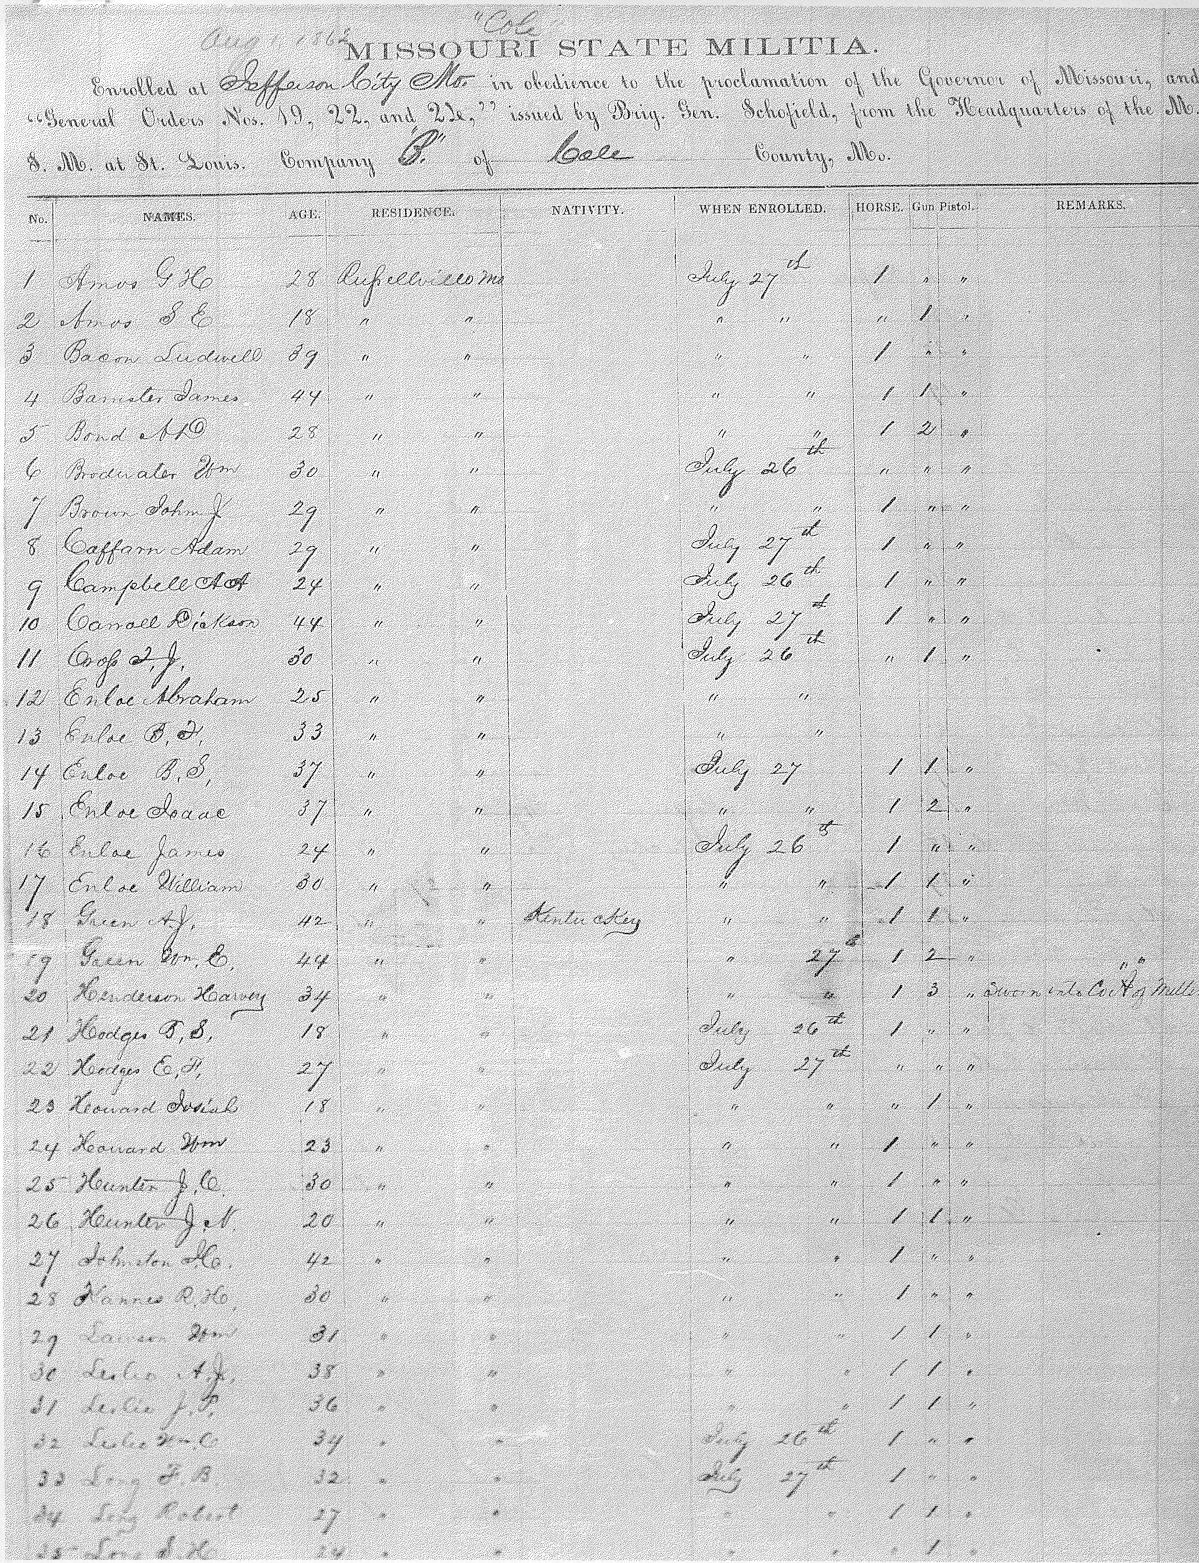 "Cole"
Aug 1, 1862
MISSOURI STATE MILITIA.
Enrolled at Jefferson City Mo. in obedience to the proclamation of the Governor of Missouri, and
"General Orders Nos. 19, 22, and 24," issued by Brig. Gen. Schofield, from the Headquarters of the M.
S. M. at St. Louis. Company "B." of Cole County, Mo.
No. NAMES. AGE. RESIDENCE. NATIVITY. WHEN ENROLLED. HORSE. Gun Pistol. REMARKS.
1 Amos G H 28 Russellville Mo July 27th 1 " "
2 Amos S E 18 " " " " " 1 "
3 Bacon Ludwell 39 " " " " 1 " "
4 Banister James 44 " " " " 1 1 "
5 Bond A D 28 " " " " 1 2 "
6 Brodwater Wm 30 " " July 26th " " "
7 Brown John J 29 " " " " 1 " "
8 Caffarn Adam 29 " " July 27th 1 " "
9 Campbell A A 24 " " July 26th 1 " "
10 Carroll Dickson 44 " " July 27th 1 " "
11 Cross I, J, 30 " " July 26th " 1 "
12 Enloe Abraham 25 " " " "
13 Enloe B, F, 33 " " " "
14 Enloe B, S, 37 " " July 27 1 1 "
15 Enloe Isaac 37 " " " " 1 2 "
16 Enloe James 24 " " July 26th 1 " "
17 Enloe William 30 " " " " 1 1 "
18 Green A. J, 42 " " Kentuckey " " 1 1 "
19 Green Wm, E, 44 " " " 27th 1 2 " " "
20 Henderson Harvey 34 " " " " 1 3 " Sworn into Co H of Mille
21 Hodges B, S, 18 " " July 26th 1 " "
22 Hodges E, F, 27 " " July 27th " " "
23 Howard Josiah 18 " " " " " 1 "
24 Howard Wm 23 " " " " 1 " "
25 Hunter J, C. 30 " " " " 1 " "
26 Hunter J, N. 20 " " " " 1 1 "
27 Johnston H. 42 " " " " 1 " "
28 Kannes R, H, 30 " " " " 1 " "
29 Lawson Wm 31 " " " " 1 1 "
30 Leslie A. J, 38 " " " " 1 1 "
31 Leslie J. P. 36 " " " " 1 1 "
32 Leslie Wm C 34 " " July 26th 1 " "
33 Long F. B. 32 " " July 27th 1 " "
34 Long Robert 27 " " " " 1 1 "
35 Long S. H 24 " " " " " 1 "